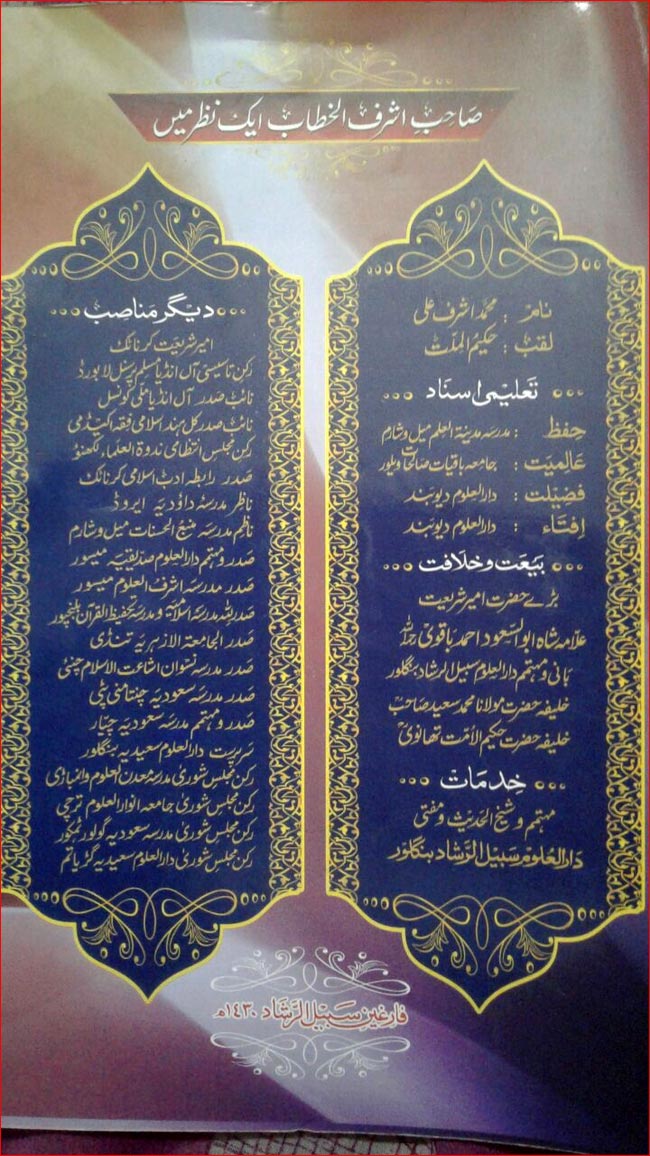 صاحبِ اشرف الخطاب ایک نظر میں
نام : محمد اشرف علی
لقب : حکیم الملت
تعلیمی اسناد
حفظ : مدرسہ مدینۃ العلم میل وشارم
عالمیت : جامعہ باقیات صالحات ویلور
فضیلت : دارالعلوم دیوبند
افتاء : دارالعلوم دیوبند
بیعت و خلافت
بڑے حضرت امیر شریعت
علامہ شاہ ابوالسعود احمد باقوی رحمہ اللہ
بانی و مہتمم دارالعلوم سبیل الرشاد بنگلور
خلیفہ حضرت مولانا محمد سعید صاحب
خلیفہ حضرت حکیم الامت تھانوی
خدمات
مہتمم و شیخ الحدیث و مفتی
دارالعلوم سبیل الرشاد بنگلور
دیگر مناصب
امیر شریعت کرناٹک
رکن تاسیسی آل انڈیا مسلم پرسنل لا بورڈ
نائب صدر آل انڈیا ملی کونسل
نائب صدر کل ہند اسلامی فقہ اکیڈمی
رکن مجلس انتظامی ندوۃ العلماء لکھنؤ
صدر رابطہ ادب اسلامی کرناٹک
ناظر مدرسہ داؤدیہ ایروڈ
ناظم مدرسہ منبع الحسنات میل وشارم
صدر و مہتمم دارالعلوم صدیقیہ میسور
صدر مدرسہ اشرف العلوم میسور
صدر مدرسہ اسلامیہ و مدرسہ تحفیظ القرآن
صدر الجامعۃ الازہریہ تنڈی
صدر مدرسہ نسوان اشاعت الاسلام چینئی
صدر مدرسہ سعودیہ چنتامنی
صدر و مہتمم مدرسہ سعودیہ
سرپرست دارالعلوم سعیدیہ بنگلور
رکن مجلس شوریٰ مدرسہ معدن العلوم وانمباڑی
رکن مجلس شوریٰ جامعہ انوارالعلوم ترچی
رکن مجلس شوریٰ مدرسہ سعودیہ گولور ٹمکور
رکن مجلس شوریٰ دارالعلوم سعیدیہ گڑیاتم
فارغین سبیل الرشاد ۱۴۳۰ھ